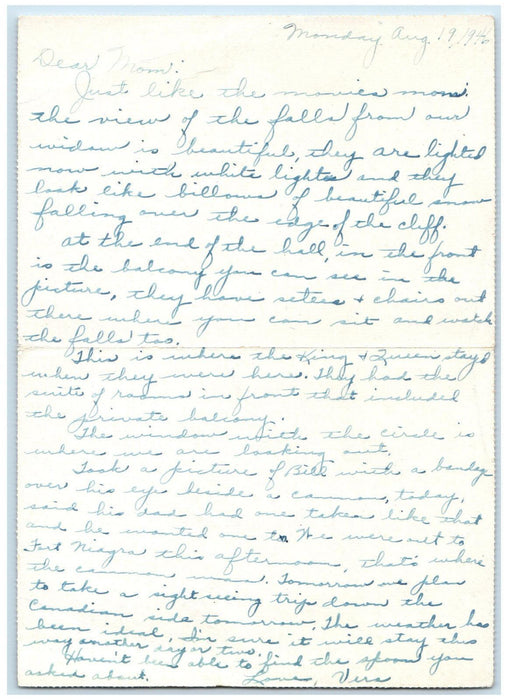 Monday Aug 19/46
Dear Mom:
Just like the movies mom
the view of the falls from our
widow is beautiful, they are lighted
now with white lights and they
look like billows of beautiful snow
falling over the edge of the cliff.
At the end of the hall, in the front
is the balcony you can see in the
picture, they have setees + chairs out
there where you can sit and watch
the falls too.
This is where the King + Queen stayd
when they were here. They had the
suite of rooms in front that included
the private balcony.
The window with the circle is
where we are looking out.
Took a picture of Bill with a bandage
over his eye beside a cannon, today,
said his dad had one taken like that
and he wanted one to. We were out to
Fort Niagra this afternoon, that's where
the cannon was. Tomorrow we plan
to take a sight seeing trip down the
Canadian side tomorrow. The weather has
been ideal, I'm sure it will stay this
way another day or two.
Haven't been able to find the spoon you
asked about. Love, Vera